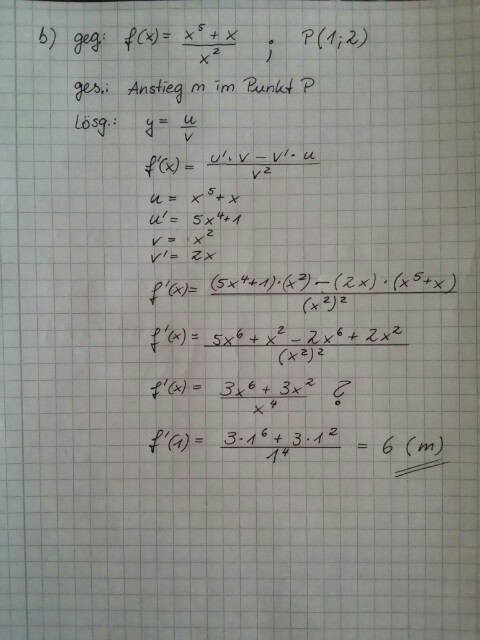 b) geg: f(x) = (x⁵ + x)/x² ; P(1;2)
ges.: Anstieg m im Punkt P
Lösg.: y = u/v
f'(x) = (u'·v − v'·u)/v²
u = x⁵+x
u' = 5x⁴+1
v = x²
v' = 2x
f'(x) = ((5x⁴+1)·(x²) − (2x)·(x⁵+x))/(x²)²
f'(x) = (5x⁶ + x² − 2x⁶ + 2x²)/(x²)²
f'(x) = (3x⁶ + 3x²)/x⁴ ?
f'(1) = (3·1⁶ + 3·1²)/1⁴ = 6 (m)